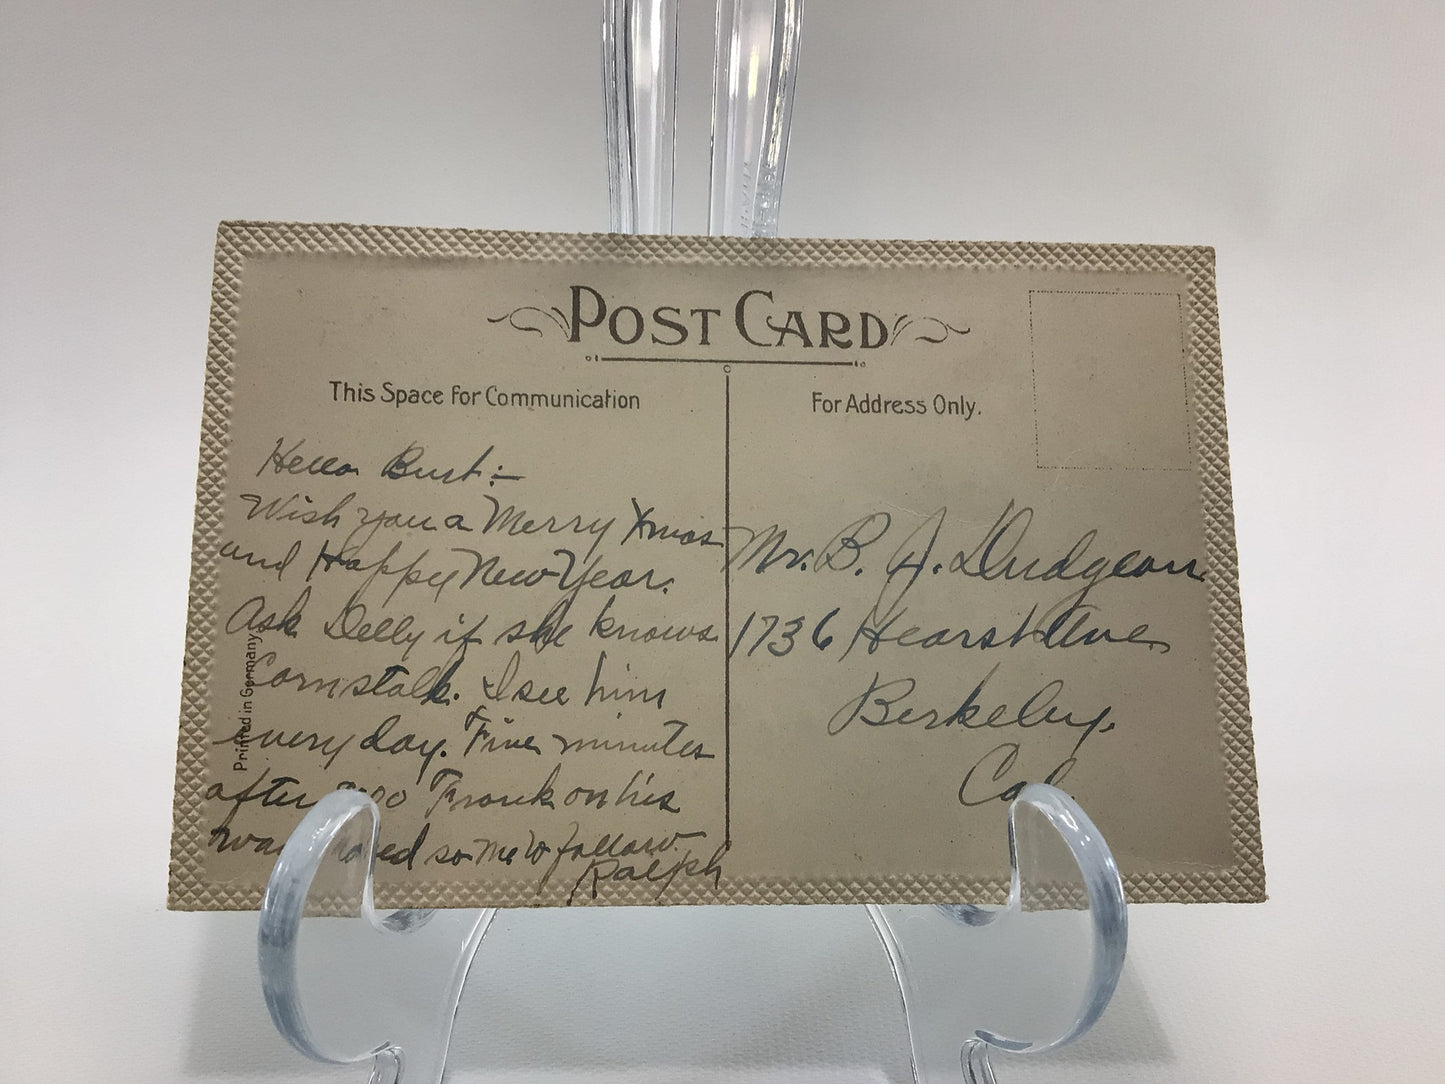 POST CARD
This Space for Communication
For Address Only.
Hello Burt:-
Wish you a Merry Xmas
and Happy New Year.
Ask Delly if she knows
Cornstalk. I see him
every day. Five minutes
after Frank on his
so me to follow
Ralph
Mr. B. J. Dudgeon
1736 Hearst Ave
Berkeley.
Cal
Printed in Germany